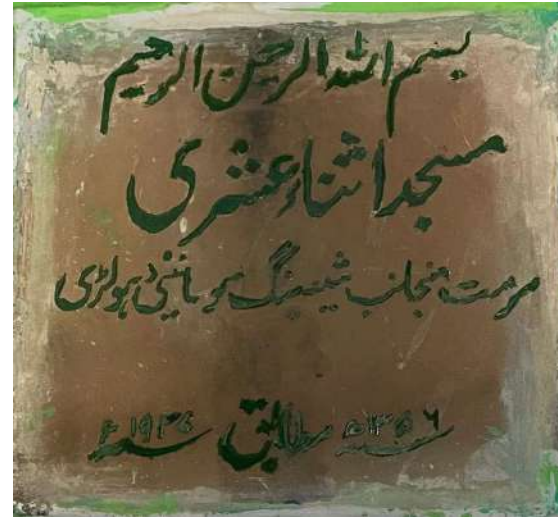 بسم اللہ الرحمٰن الرحیم
مسجد اثناء عشری
مرمت منجانب شیپنگ سوسائیٹی ہولڑی
سنہ ۱۳۵۶ھ مطابق سنہ ۱۹۳۷ء